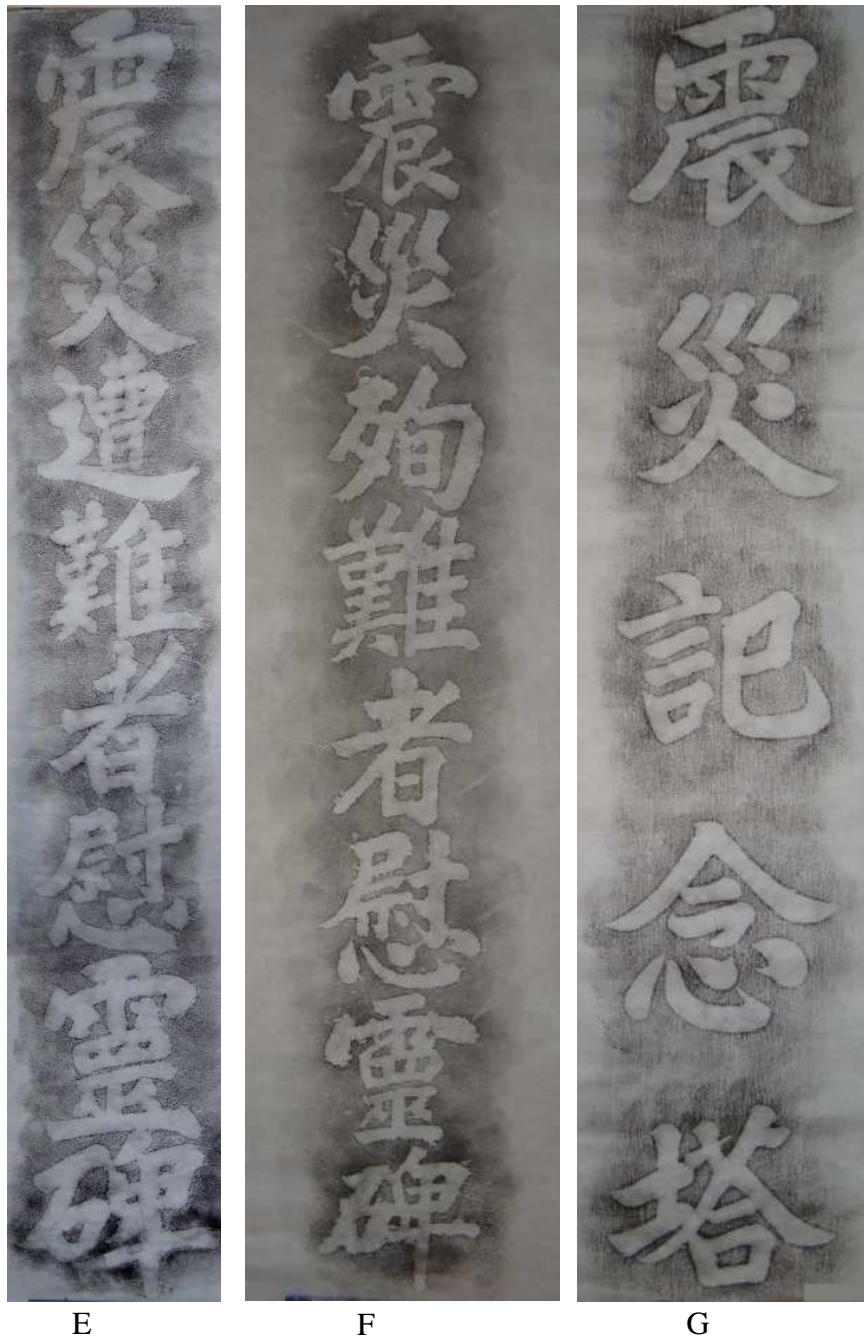 震災遭難者慰靈碑
震災殉難者慰靈碑
震災記念塔
E
F
G